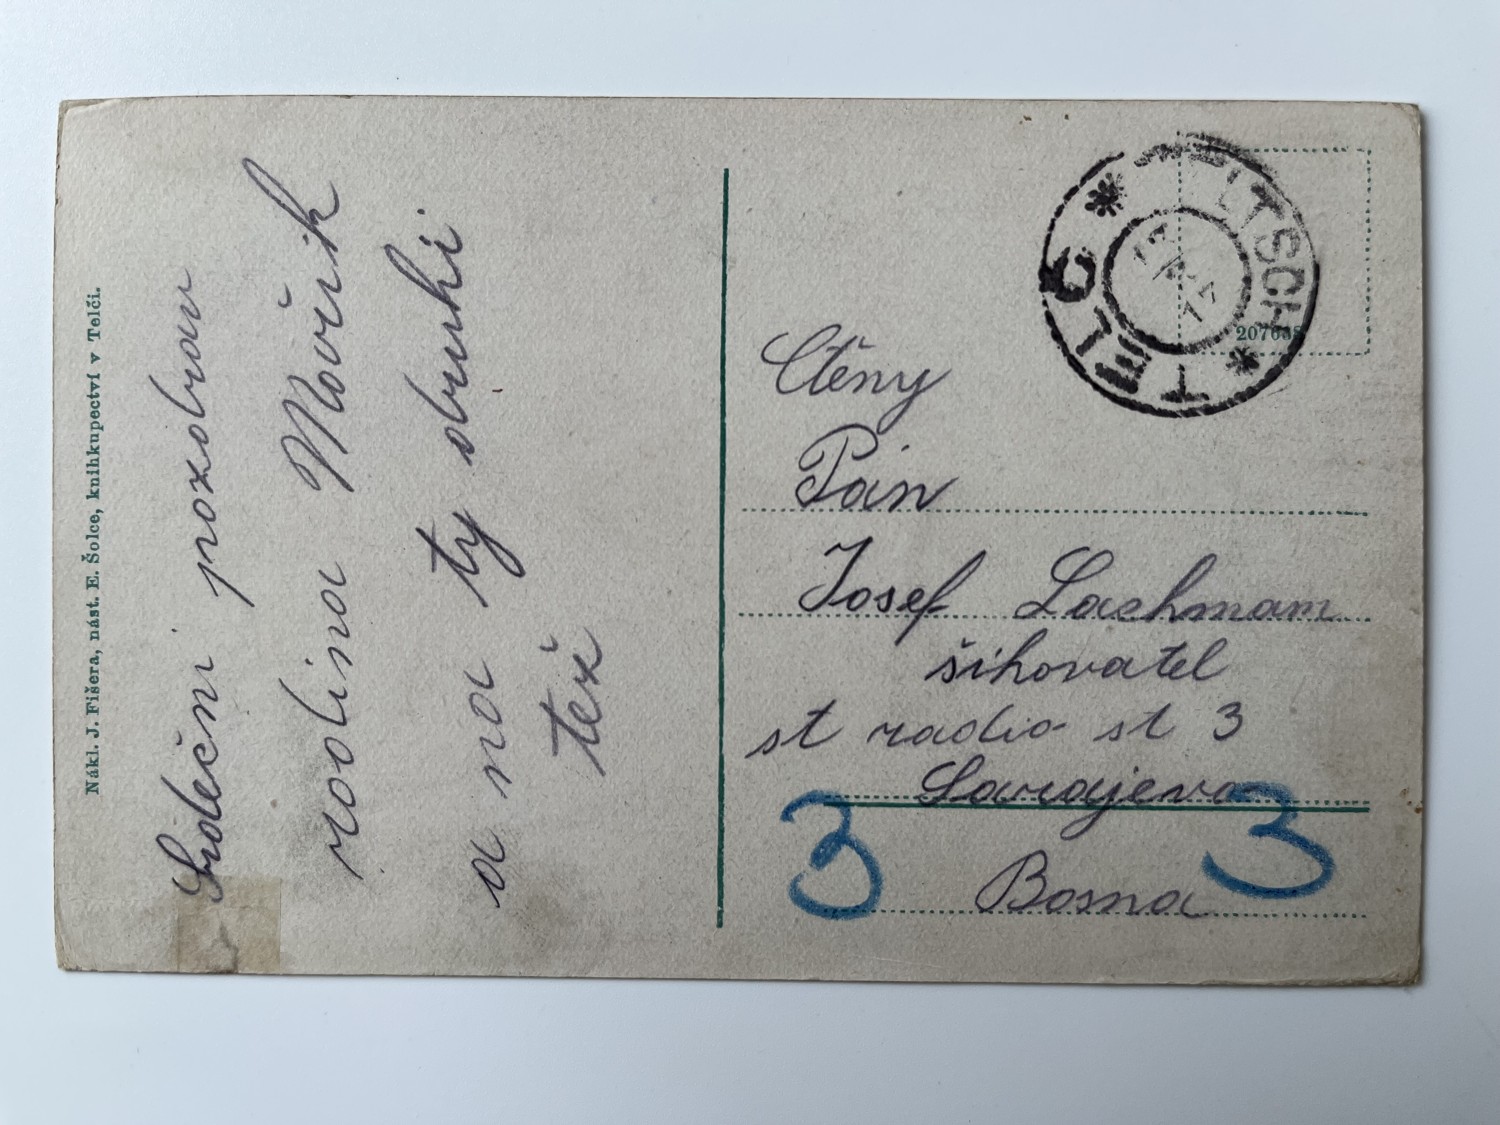 Nákl. J. Fišera, nást. E. Šolce, knihkupectví v Telči.
Srdečni pozdrav
rodina Mařik
a na ty druhi
též
TELČ * TELTSCH *
Ctěny
Pán
Josef Lachmam
šihovatel
st radio st 3
Sarajevo
Bosna
3 3